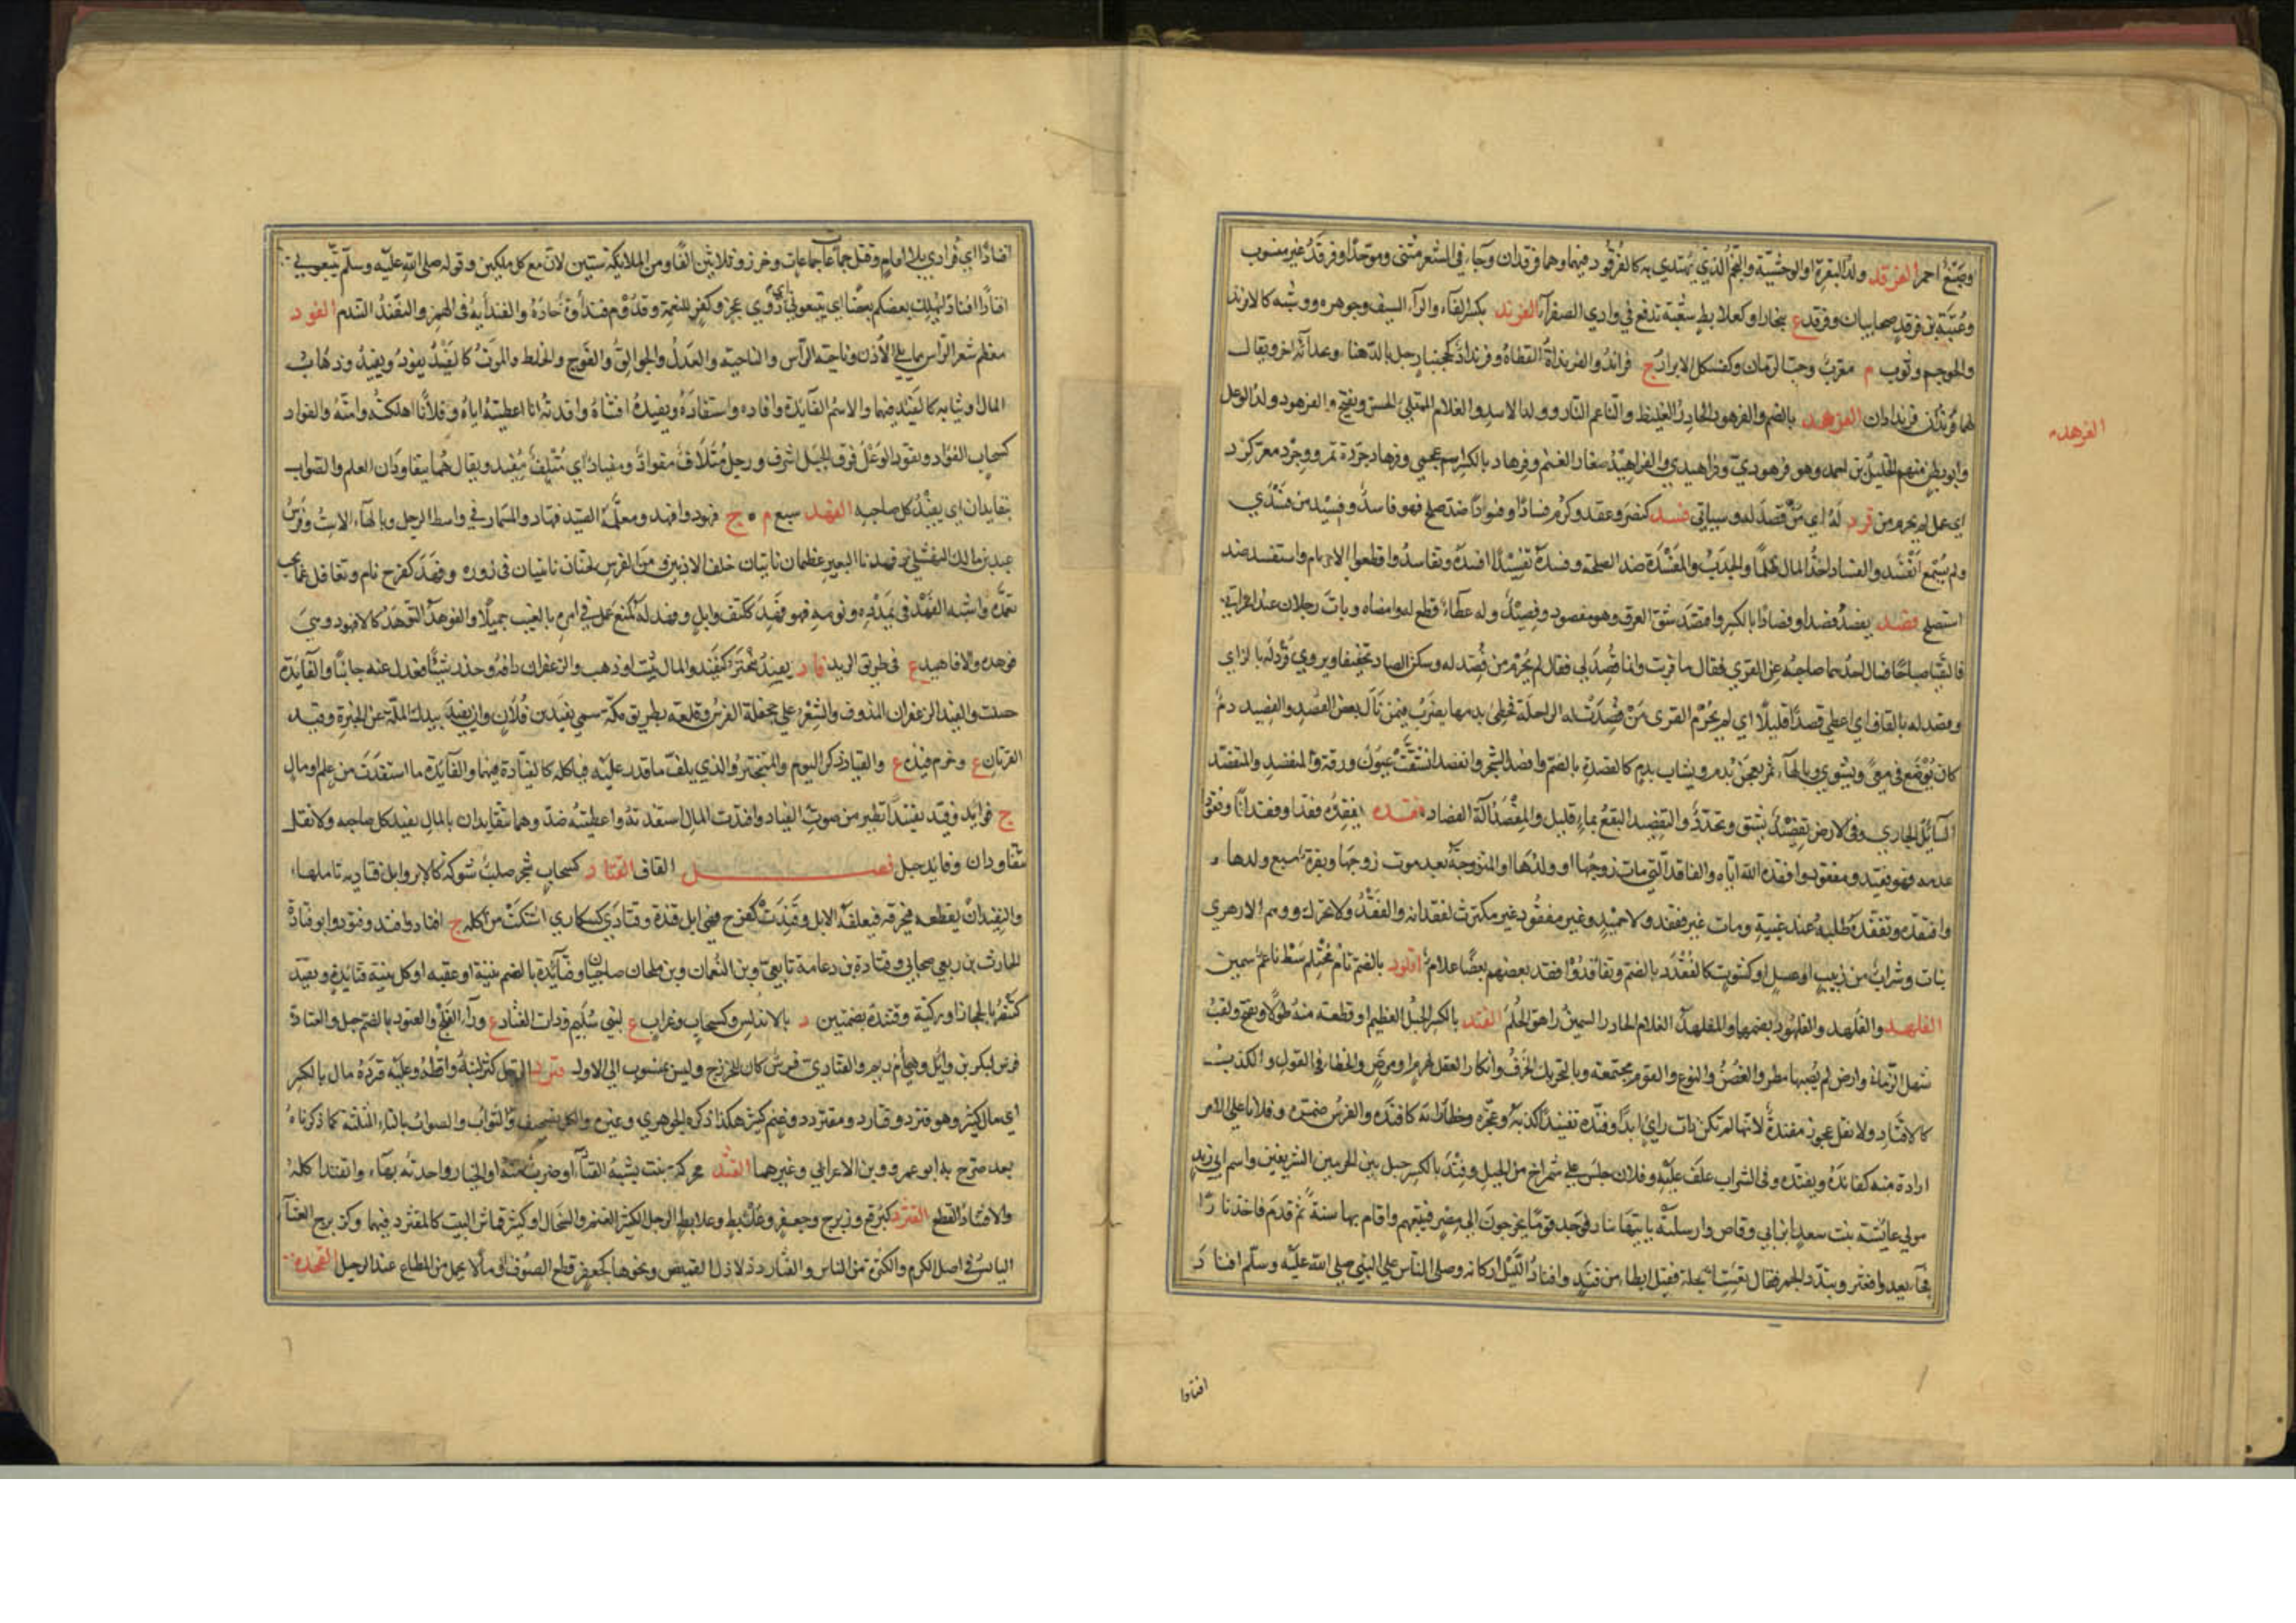 وصبغ احمر الفرقد ولد البقرة او الوحشية والنجم الذي يهتدي به كالفرقود فيهما وهما فرقدان وجاء في الشعر مثنى وموحدا وفرقد غير منسوب
وعتبة بن فرقد صحابيان وفرقد ع ببخارا وكعلابط شعبة تدفع في وادي الصفراء الفرند بكسر الفاء والراء السيف وجوهره ووشيه كالافرند
والحوجم وثوب م معرب وحب الرمان وكفسكل الابراز ج فراند والفرنداة القطاة وفرنداذ كجحنبار جبل بالدهنا وبحذائه اخر ويقال
لهما فرندان فرندادان الفرهد بالضم والفرهود الحادر الغليظ والناعم التار وولد الاسد والغلام الممتلي الحسن ويفتح والفرهود ولد الوعل
وابو بطن منهم الخليل بن احمد وهو فرهودي وفراهيدي والفراهيد صغار الغنم وفرهاد بالكسر اسم عجمي وفرهاد جرد ة بمرو
اي عمل لم يحرم من فزد له اي من فصد له وسياتي فسد كنصر وعقد وكرم فسادا وفسودا ضد صلح فهو فاسد وفسيد من فسدي
ولم يسمع انفسد والفساد اخذ المال ظلما والجدب والمفسدة ضد المصلحة وفسده تفسيدا افسده وتفاسدوا قطعوا الارحام واستفسد ضد
استصلح فصد يفصد فصدا وفصادا بالكسر وافتصد شق العرق وهو مفصود وفصيد وله عطاء قطع له وامضاه وبات رجلان عند اعرابي
فالتقيا صباحا فسال احدهما صاحبه عن القرى فقال ما قريت وانما فصد لي فقال لم يحرم من فصد له وسكن الصاد تخفيفا ويروى فزد له بالزاي
وقصد له بالقاف اي اعطي قصدا اي قليلا اي لم يحرم القرى من فصدت له الراحلة فحظي بدمها يضرب فيمن نال بعض القصد والفصيد دم
كان يوضع في معى ويشوى وبالهاء تمر يعجن بدم ويشاب بدم كالفصدة بالضم وافصد الشجر وانفصد انشقت عيون ورقه والمنفصد والمتفصد
السائل الجاري وفي الارض تفصيد تشقق وتخدد والتفصيد النقع بماء قليل والمفصد آلة الفصاد فقده يفقده فقدا وفقدانا وفقودا
عدمه فهو فقيد ومفقود وافقده الله اياه والفاقد التي مات زوجها او ولدها او المتزوجة بعد موت زوجها وبقرة سبع ولدها
وافتقده وتفقده طلبه عند غيبته ومات غير فقيد ولا حميد وغير مفقود غير مكترث لفقدانه والفقد ولا تحرك ووهم الازهري
نبات وشراب من زبيب او عسل او كشوث كالفقدد بالضم وتفاقدوا فقد بعضهم بعضا غلام افلود بالضم تام محتلم سبط ناعم سمين
الفلهد والفلهد والفلهود بضمهما والمفلهد الغلام الحادر السمين راهق الحلم الفند بالكسر الجبل العظيم او قطعة منه طولا ويفتح ولقب
شهل الزماني وارض لم يصبها مطر والغصن والنوع والقوم مجتمعة وبالتحريك الخرف وانكار العقل لهرم او مرض والخطا في القول والكذب
كالافناد ولا تقل عجوز مفندة لانها لم تكن ذات راي ابدا وفنده تفنيدا كذبه وعجزه وخطا رايه كافنده والفرس ضمره وفلانا على الامر
اراده منه كفانده وتفنده وفي الشراب عكف عليه وفلان جلس على شمراخ من الجبل وفند بالكسر جبل بين الحرمين الشريفين واسم ابي زيد
مولى عايشة بنت سعد بن ابي وقاص وارسلته ياتيها بنار فوجد قوما يخرجون الى مصر فتبعهم واقام بها سنة ثم قدم فاخذ نارا
فجاء يعدو فعثر وتبدد الجمر فقال تعست العجلة فقيل ابطا من فند وافناد الليل اركانه وصلى الناس على النبي صلى الله عليه وسلم افنادا
الفرهد
افنادا
افنادا اي فرادى بلا امام وقيل جماعات جماعات وحزر وثلاثين الفا ومن الملايكة ستين لان مع كل ملكين وقوله صلى الله عليه وسلم تتبعوني
افنادا افنادا يهلك بعضكم بعضا اي تتبعوني ذوي عجز وكفر للنعمة وقدوم فنداوة حادة والفندأية في الهمز والتفند التندم الفود
معظم شعر الراس مما يلي الاذن وناحية الراس والناحية والعدل والجوالق والفوج والخلط والموت كالفيد يفود ويفيد وذهاب
المال او ثباته كالفيد فيهما والاسم الفايدة وافاده واستفاده وتفيده اقتناه وافدته انا اعطيته اياه وفلانا اهلكته وامته والفواد
كسحاب الفؤاد وتفود الوعل فوق الجبل اشرف ورجل متلاف مفواد ومفياد اي متلف مفيد ويقال هما يتفاودان العلم والصواب
يتفايدان اي يفيد كل صاحبه الفهد سبع م ج فهود وافهد ومعلمه الصيد فهاد والمسمار في واسط الرحل وبالهاء الاست وفرس
عبيد بن مالك النهشلي وفهدتا البعير عظمان ناتيان خلف الاذنين ومن الفرس لحمتان ناتيتان في زوره وفهد كفرح نام وتغافل عما يجب
تعهده واشبه الفهد في تمدده ونومه فهو فهد ككتف وابل وفهد له كمنع عمل في امره بالغيب جميلا والفوهد الثوهد كالافهود وهي
فوهده والافاهيد ع في طريق الربذة فاد يفيد تبختر كتفيد والمال ثبت او ذهب والزعفران دافه وحذر شيئا فعدل عنه جانبا والفايدة
حصلت والفيد الزعفران المدوف والشعر على جحفلة الفرس وقلعة بطريق مكة سمي بفيد بن فلان وان يفيد بيدك الملة عن الخبزة وفيد
القريات ع وحزم فيدة ع والفياد ذكر البوم والمتبختر والذي يلف ما قدر عليه فياكله كالفيادة فيهما والفايدة ما استفدت من علم او مال
ج فوايد وفيد تفييدا تطير من صوت الفياد وافدت المال استفدته واعطيته ضد وهما يتفايدان بالمال يفيد كل صاحبه ولا تقل
يتفاودان وفايد جبل فصل القاف القتاد كسحاب شجر صلب شوكه كالابر وابل قتادية تاكلها
والتقتيد ان يقطعه فيحرقه فيعلفه الابل وقتدت كفرح فهي ابل قتدة وقتادى كسكارى اشتكت من اكله ج اقتاد واقتد وقتود وابو قتادة
الحارث بن ربعي صحابي وقتادة بن دعامة تابعي وبن النعمان وبن ملحان صحابيان وقتائدة بالضم ثنية او عقبة او كل ثنية قتائدة وتقيد
كتنصر بالحجاز او ركية وقتندة بضمتين د بالاندلس وكسحاب وغراب ع لبني سليم وذات القتاد ع وراء الفلج والعتود بالضم جبل والقتادة
فرس لبكر بن وايل وهي ام زيم والقتادي فرس كان للخزرج وليس بمنسوب الى الاول قترد الرجل كثر لبنه واقطه وعليه قتردة مال بالكسر
اي مال كثير وهو قترد وقتارد ومقترد وغنم كثيرة هكذا ذكره الجوهري وغيره والكل تصحيف والثواب والصواب بالثاء المثلثة كما ذكرناه
بعد صرح به ابو عمرو وبن الاعرابي وغيرهما القثد محركة نبت يشبه القثاء او ضرب منه او الخيار واحدته بهاء واقتثد اكله
والاقتثاد القطع القثرد كبرقع وزبرج وجعفر وعلبط وعلابط الرجل الكثير الغنم والسخال او كثير قماش البيت كالمقثرد فيهما وكزبرج الغثاء
اليابس في اصل الكرم والكثرة من الناس والقثارد ذلاذل القميص ونحوها كجعفر قطع الصوف في ما لا يحمل من المتاع عند الرحيل القحدة